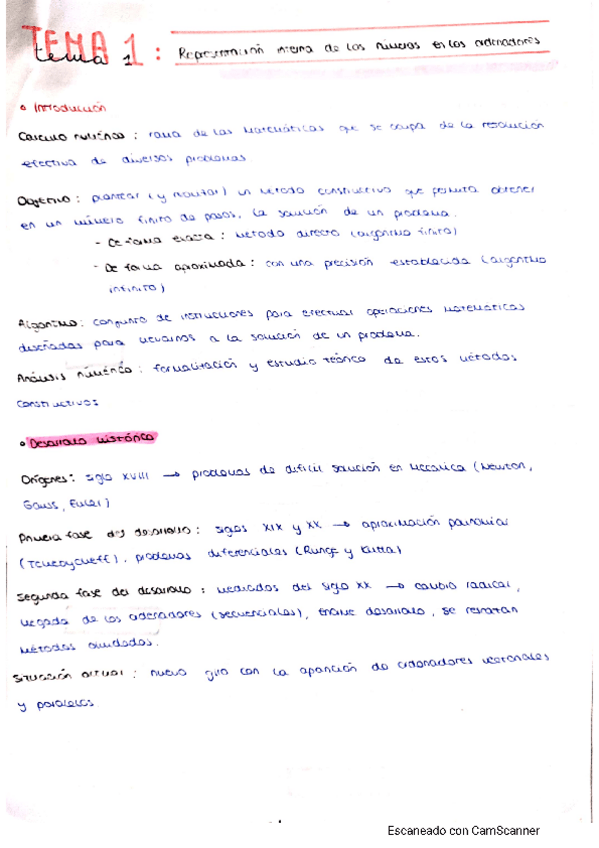 TEMA 1 : Representación interna de los números en los ordenadores
tema 1
• Introducción
Cálculo numérico : rama de las Matemáticas que se ocupa de la resolución
efectiva de diversos problemas.
Objetivo : plantear (y ) un método constructivo que permita obtener
en un número finito de pasos, la solución de un problema.
- De forma exacta : método directo (algoritmo finito)
- De forma aproximada : con una precisión establecida (algoritmo
infinito)
Algoritmo : conjunto de instrucciones para efectuar operaciones matemáticas
diseñadas para llevarnos a la solución de un problema.
Análisis numérico : formalización y estudio teórico de estos métodos
constructivos
• Desarrollo histórico
Orígenes : siglo XVIII → problemas de difícil solución en Mecánica (Newton,
Gauss, Euler)
Primera fase del desarrollo : siglos XIX y XX → aproximación polinomial
(Tchebycheff), problemas diferenciales (Runge y Kutta)
Segunda fase del desarrollo : mediados del siglo XX → cambio radical,
llegada de los ordenadores (secuenciales), enorme desarrollo, se rescatan
métodos olvidados.
Situación actual : nuevo giro con la aparición de ordenadores vectoriales
y paralelos.
Escaneado con CamScanner